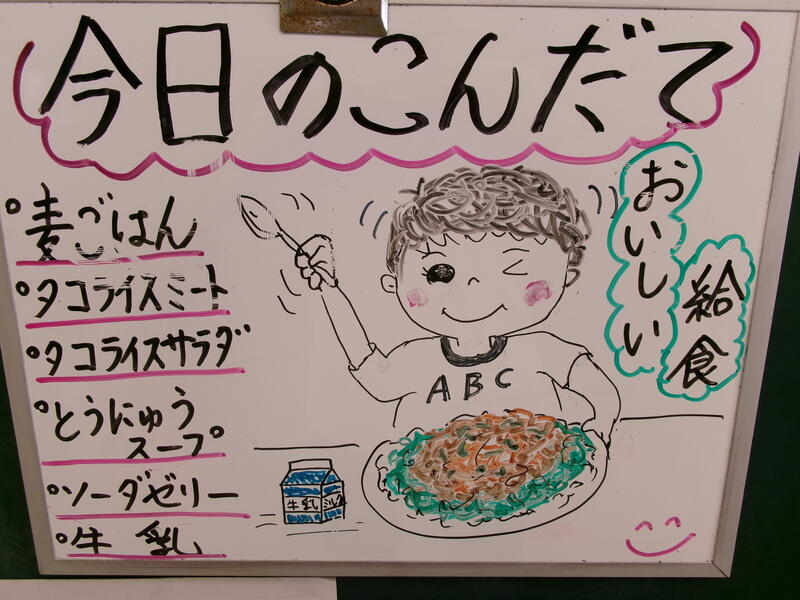 今日のこんだて
麦ごはん
タコライスミート
タコライスサラダ
とうにゅう
スープ
ソーダゼリー
牛乳
おいしい
給食
ABC
牛乳